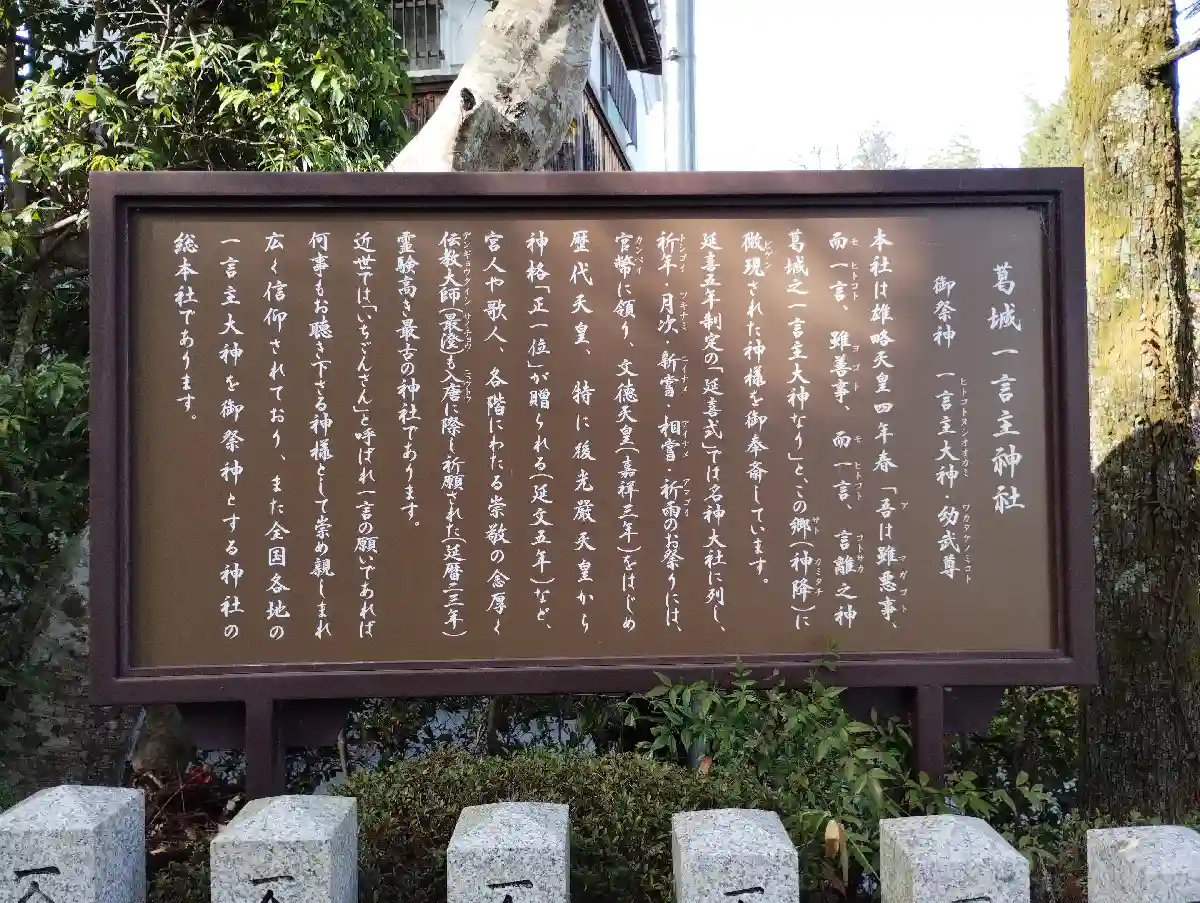 葛城一言主神社
御祭神 一言主大神・幼武尊
本社は雄略天皇四年春「吾は雖悪事、
而一言、雖善事、而一言、言離之神
葛城之一言主大神なり」と、この郷(神降)に
微現された神様を御奉斎しています。
延喜五年制定の「延喜式」では名神大社に列し、
祈年・月次・新嘗・相嘗・祈雨のお祭りには、
官幣に領り、文徳天皇(嘉祥三年)をはじめ
歴代天皇、特に後光厳天皇から
神格「正一位」が贈られる(延文五年)など、
宮人や歌人、各階にわたる崇敬の念厚く
伝教大師(最澄)も入唐に際し祈願された(延暦二三年)
霊験高き最古の神社であります。
近世では「いちごんさん」と呼ばれ一言の願いであれば
何事もお聴き下さる神様として崇め親しまれ
広く信仰されており、また全国各地の
一言主大神を御祭神とする神社の
総本社であります。